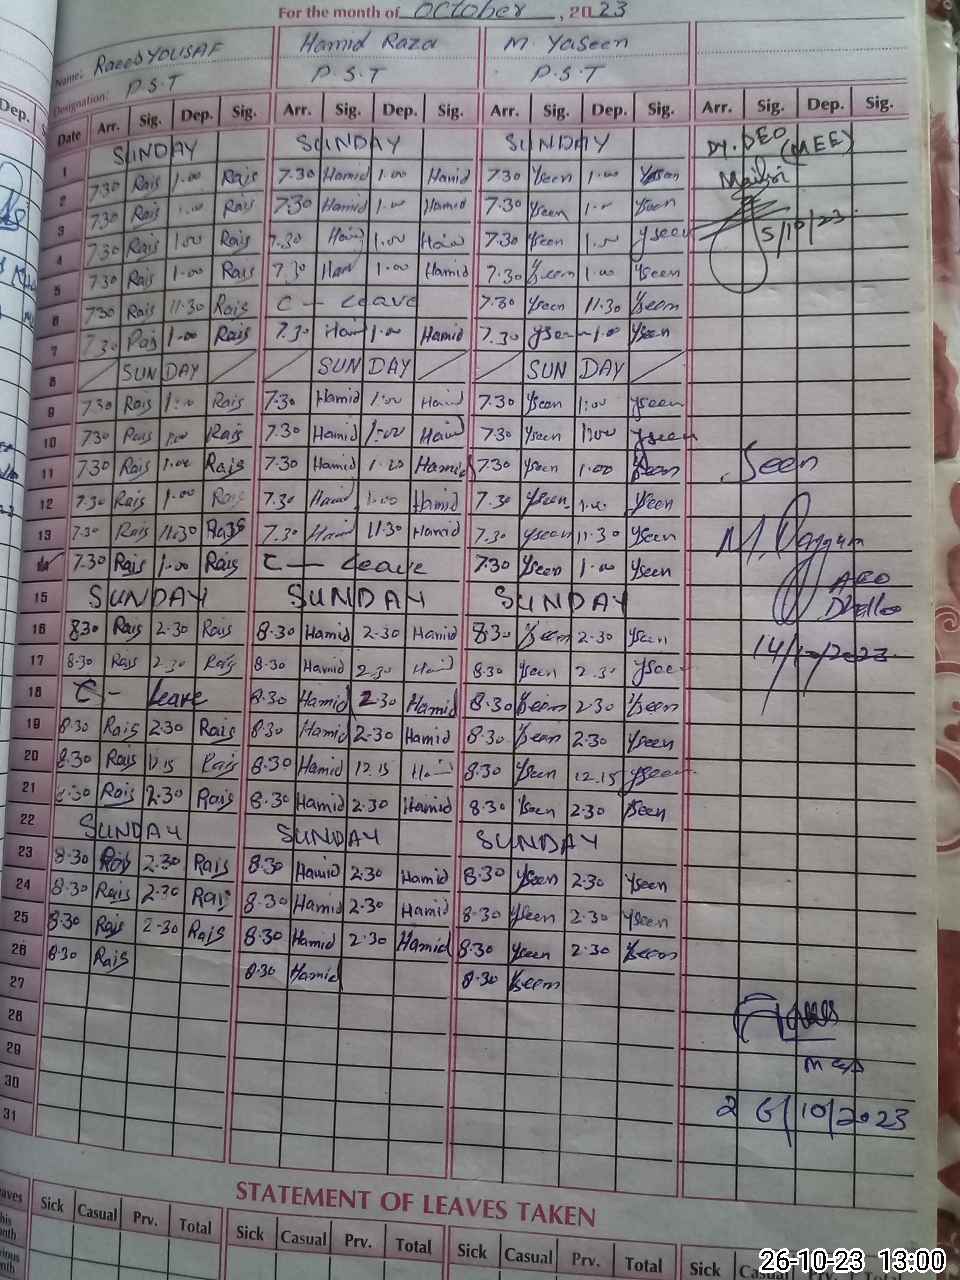 For the month of October, 2023
Name: Raees YOUSAF Hamid Raza M. Yaseen
Designation: P.S.T P.S.T P.S.T
Dep.
Date Arr. Sig. Dep. Sig. Arr. Sig. Dep. Sig. Arr. Sig. Dep. Sig. Arr. Sig. Dep. Sig.
1 SUNDAY SUNDAY SUNDAY Dy. DEO (MEE)
2 7.30 Rais 1.00 Rais 7.30 Hamid 1.00 Hamid 7.30 Yseen 1.00 Yseen
3 7.30 Rais 1.00 Rais 7.30 Hamid 1.00 Hamid 7.30 Yseen 1.00 Yseen
4 7.30 Rais 1.00 Rais 7.30 Hamid 1.00 Hamid 7.30 Yseen 1.00 Yseen 5/10/23
5 7.30 Rais 1.00 Rais 7.30 Hamid 1.00 Hamid 7.30 Yseen 1.00 Yseen
6 7.30 Rais 11.30 Rais C - Leave 7.30 Yseen 11.30 Yseen
7 7.30 Rais 1.00 Rais 7.30 Hamid 1.00 Hamid 7.30 Yseen 1.00 Yseen
8 SUNDAY SUNDAY SUNDAY
9 7.30 Rais 1.00 Rais 7.30 Hamid 1.00 Hamid 7.30 Yseen 1.00 Yseen
10 7.30 Rais 1.00 Rais 7.30 Hamid 1.00 Hamid 7.30 Yseen 1.00 Yseen
11 7.30 Rais 1.00 Rais 7.30 Hamid 1.00 Hamid 7.30 Yseen 1.00 Yseen Seen
12 7.30 Rais 1.00 Rais 7.30 Hamid 1.00 Hamid 7.30 Yseen 1.00 Yseen
13 7.30 Rais 11.30 Rais 7.30 Hamid 11.30 Hamid 7.30 Yseen 11.30 Yseen
14 7.30 Rais 1.00 Rais C - Leave 7.30 Yseen 1.00 Yseen
15 SUNDAY SUNDAY SUNDAY
16 8.30 Rais 2.30 Rais 8.30 Hamid 2.30 Hamid 8.30 Yseen 2.30 Yseen
17 8.30 Rais 2.30 Rais 8.30 Hamid 2.30 Hamid 8.30 Yseen 2.30 Yseen 14/10/2023
18 C - Leave 8.30 Hamid 2.30 Hamid 8.30 Yseen 2.30 Yseen
19 8.30 Rais 2.30 Rais 8.30 Hamid 2.30 Hamid 8.30 Yseen 2.30 Yseen
20 8.30 Rais 12.15 Rais 8.30 Hamid 12.15 Hamid 8.30 Yseen 12.15 Yseen
21 8.30 Rais 2.30 Rais 8.30 Hamid 2.30 Hamid 8.30 Yseen 2.30 Yseen
22 SUNDAY SUNDAY SUNDAY
23 8.30 Rais 2.30 Rais 8.30 Hamid 2.30 Hamid 8.30 Yseen 2.30 Yseen
24 8.30 Rais 2.30 Rais 8.30 Hamid 2.30 Hamid 8.30 Yseen 2.30 Yseen
25 8.30 Rais 2.30 Rais 8.30 Hamid 2.30 Hamid 8.30 Yseen 2.30 Yseen
26 8.30 Rais 8.30 Hamid 8.30 Yseen
27
28
29
30
31 26/10/2023
STATEMENT OF LEAVES TAKEN
Sick Casual Prv. Total Sick Casual Prv. Total Sick Casual Prv. Total Sick
26-10-23 13:00